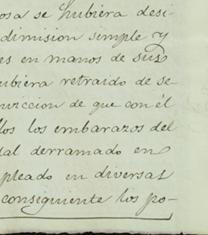 osa se hubiera desi-
dimision simple y
es en manos de sus
ubiera retraido de se-
viccion de que con él
llos los embarazos del
dal derramado en
pleado en diversas
consiguiente los po-